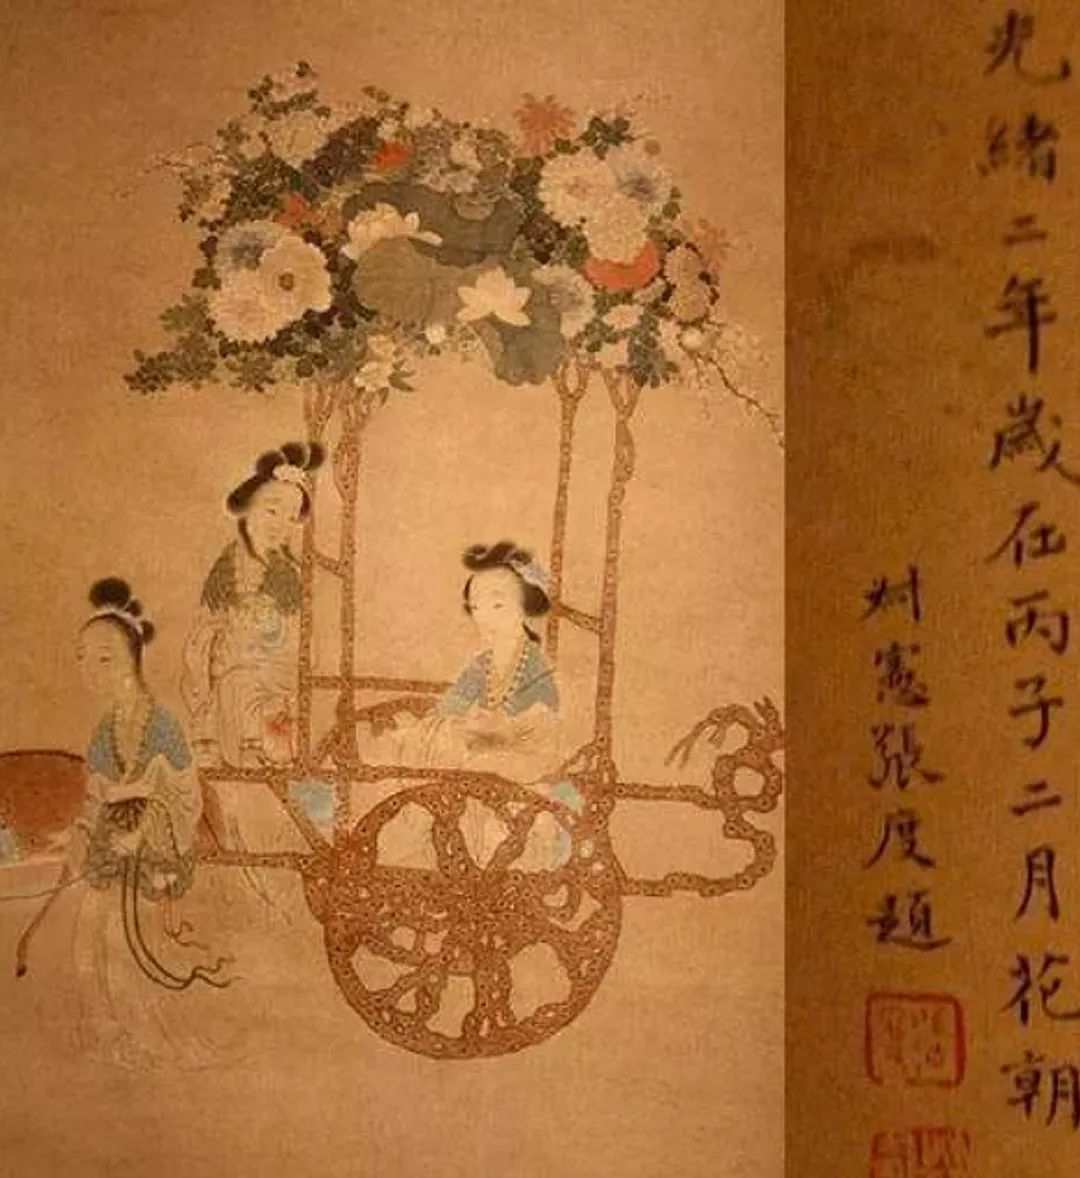 光緒二年歲在丙子二月花朝
叔憲張度題